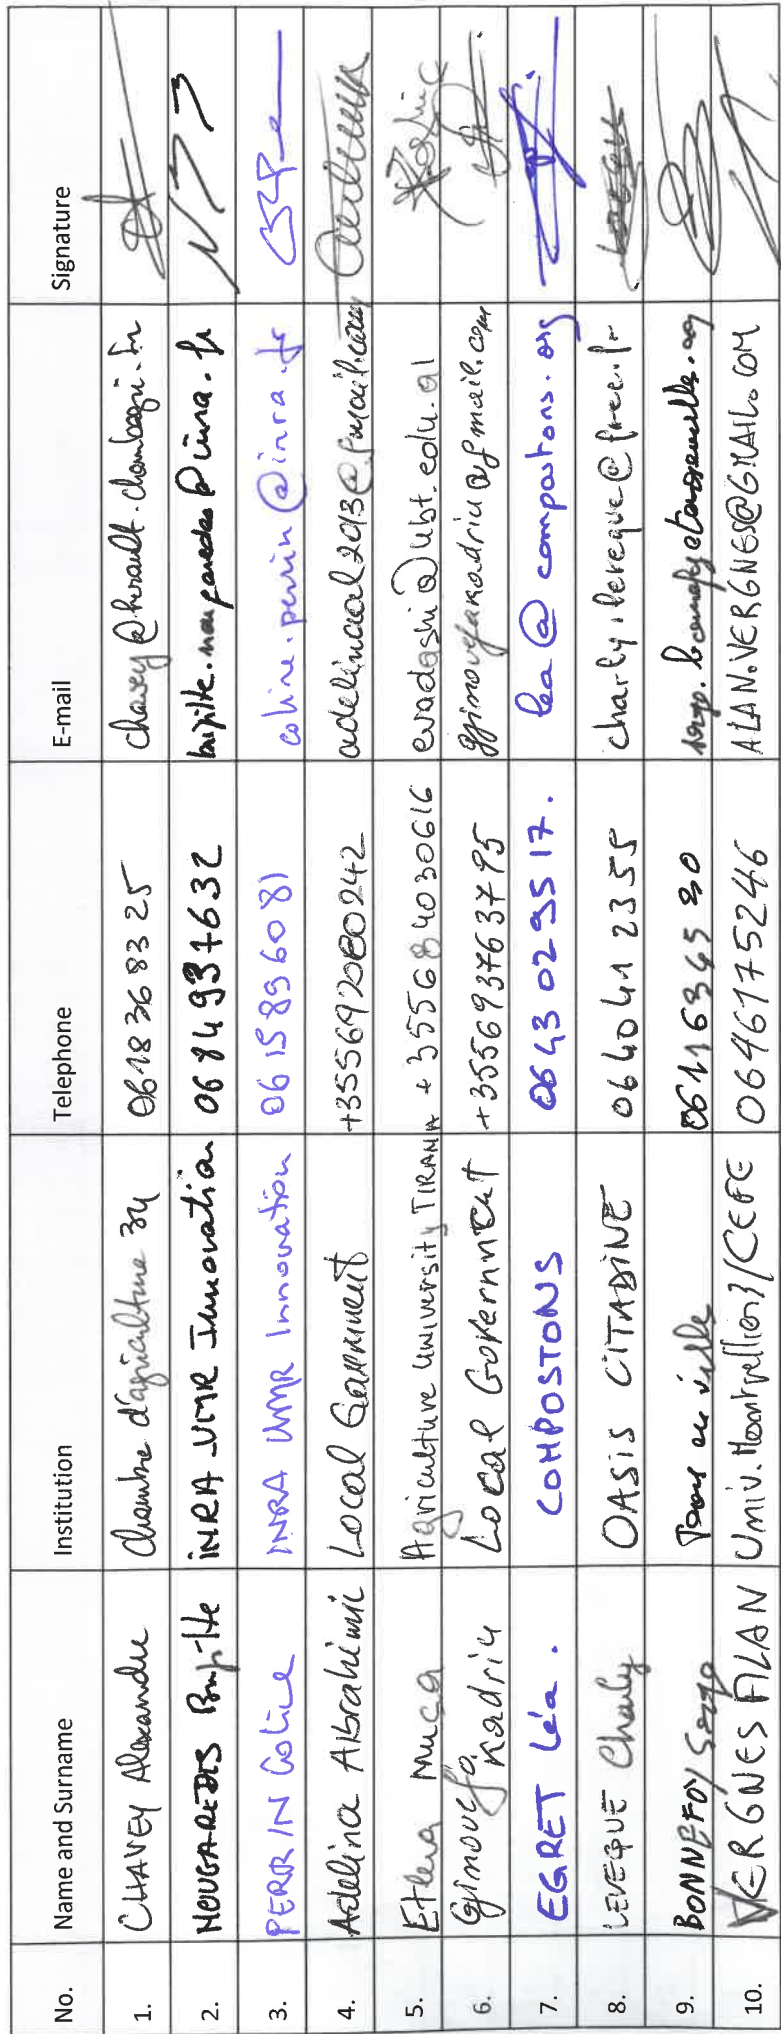 No. Name and Surname Institution Telephone E-mail Signature
1. CHAVEY Alexandre Chambre d'agriculture 34 0618368325 chavey@herault.chambagri.fr
2. NOUGAREDES Brigitte INRA UMR Innovation 0684937632
3. PERRIN Coline INRA UMR Innovation 0615896081 coline.perrin@inra.fr
4. Adelina Albrahimi Local Goverment +355692080242
5. Etleva Muca Agriculture University TIRANA +355684030616 evadashi@ubt.edu.al
6. Gjinovefa Kadriu Local Government +355693763795 gjinovefakadriu@gmail.com
7. EGRET Léa. COMPOSTONS 0643029517. lea@compostons.org
8. LEVEQUE Charly OASIS CITADINE 0640412355 charly.leveque@free.fr
9. BONNEFOY Serge Terres en ville
10. VERGNES ALAN Univ. Montpellier3/CEFE 0646175246 ALAN.VERGNES@GMAIL.COM